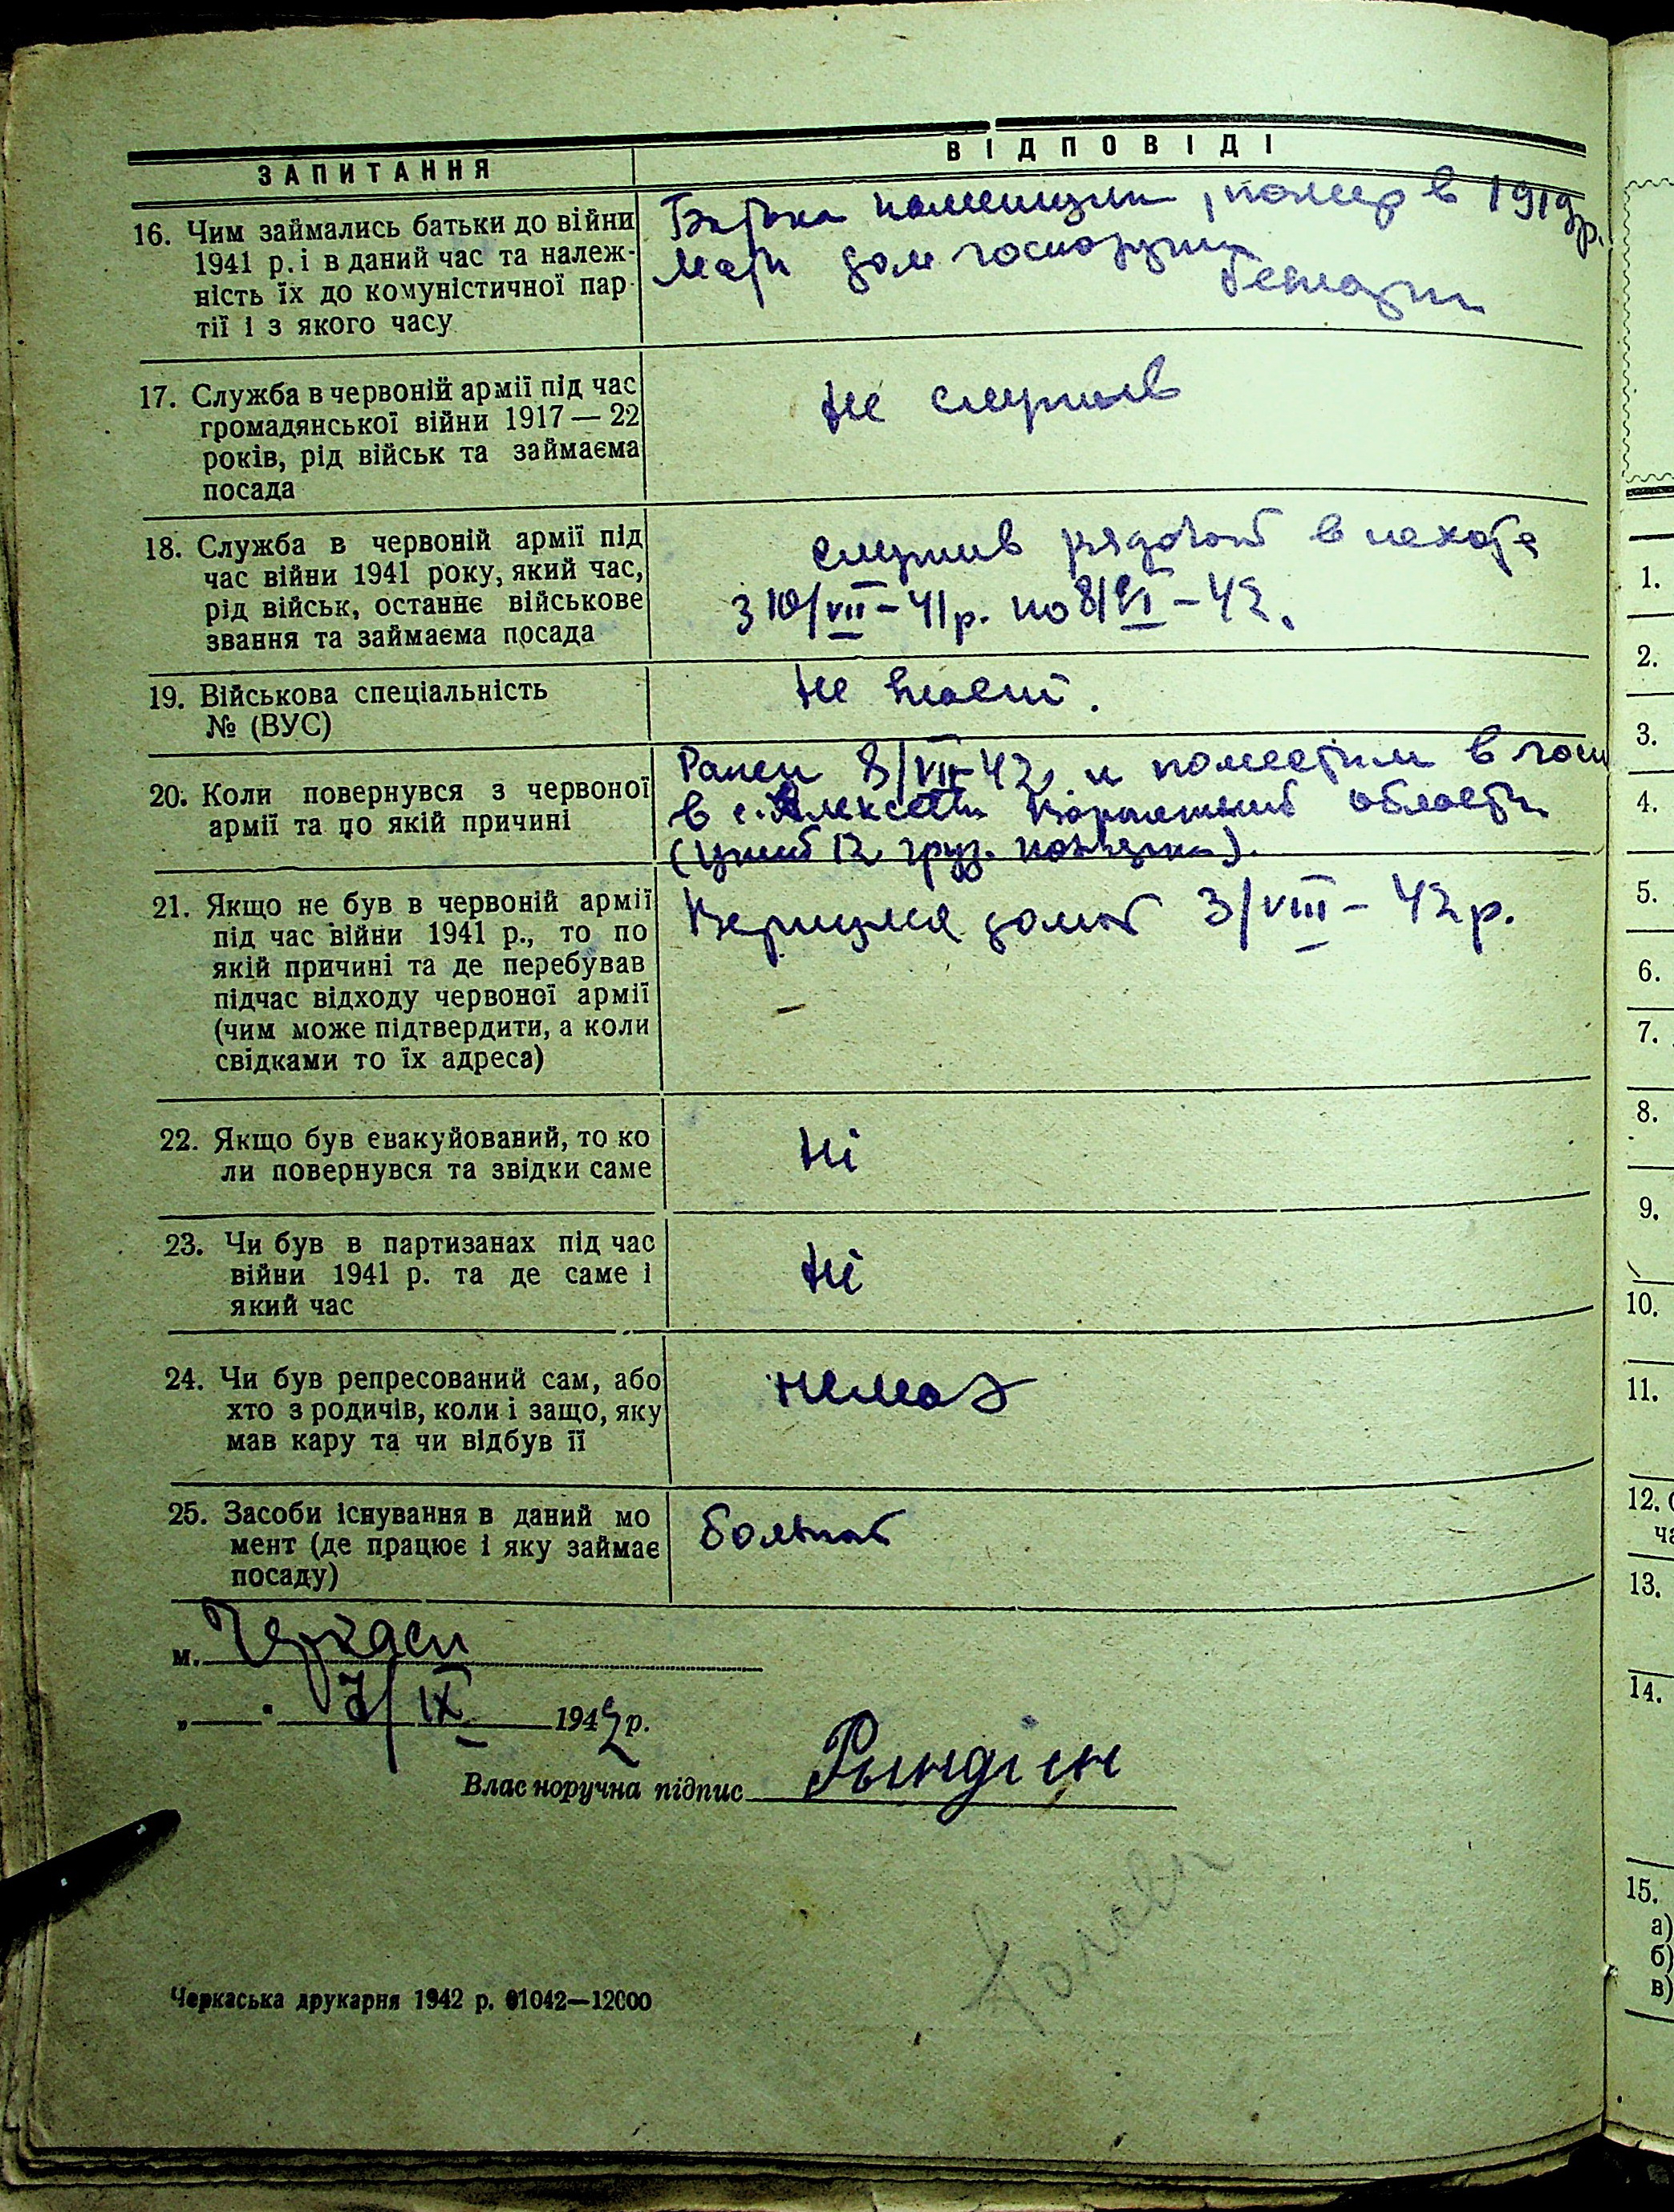 ЗАПИТАННЯ
ВІДПОВІДІ
16. Чим займались батьки до війни
1941 р. і в даний час та належ-
ність їх до комуністичної пар-
тії і з якого часу
Батька помещик, помер в 1919 р.
Мати дом господарки
17. Служба в червоній армії під час
громадянської війни 1917 — 22
років, рід військ та займаєма
посада
не служив
18. Служба в червоній армії під
час війни 1941 року, який час,
рід військ, останнє військове
звання та займаєма посада
служив рядовой в пехоте
з 10/VII – 41 р. по 8/VI – 42.
19. Військова спеціальність
№ (ВУС)
не
20. Коли повернувся з червоної
армії та по якій причині
Ранен 8/VII-42, и поместили в госп
в с. области
21. Якщо не був в червоній армії
під час війни 1941 р., то по
якій причині та де перебував
підчас відходу червоної армії
(чим може підтвердити, а коли
свідками то їх адреса)
Вернулся домой 3/VIII – 42 р.
–
22. Якщо був евакуйований, то ко
ли повернувся та звідки саме
Ні
23. Чи був в партизанах під час
війни 1941 р. та де саме і
який час
Ні
24. Чи був репресований сам, або
хто з родичів, коли і защо, яку
мав кару та чи відбув її
немає
25. Засоби існування в даний мо
мент (де працює і яку займає
посаду)
больной
м. Черкаси
„ " 7/IX 1942 р.
Власноручна підпис Рындіен
Черкаська друкарня 1942 р. 01042—12000
1.
2.
3.
4.
5.
6.
7.
8.
9.
10.
11.
12.
ча
13.
14.
15.
а)
б)
в)